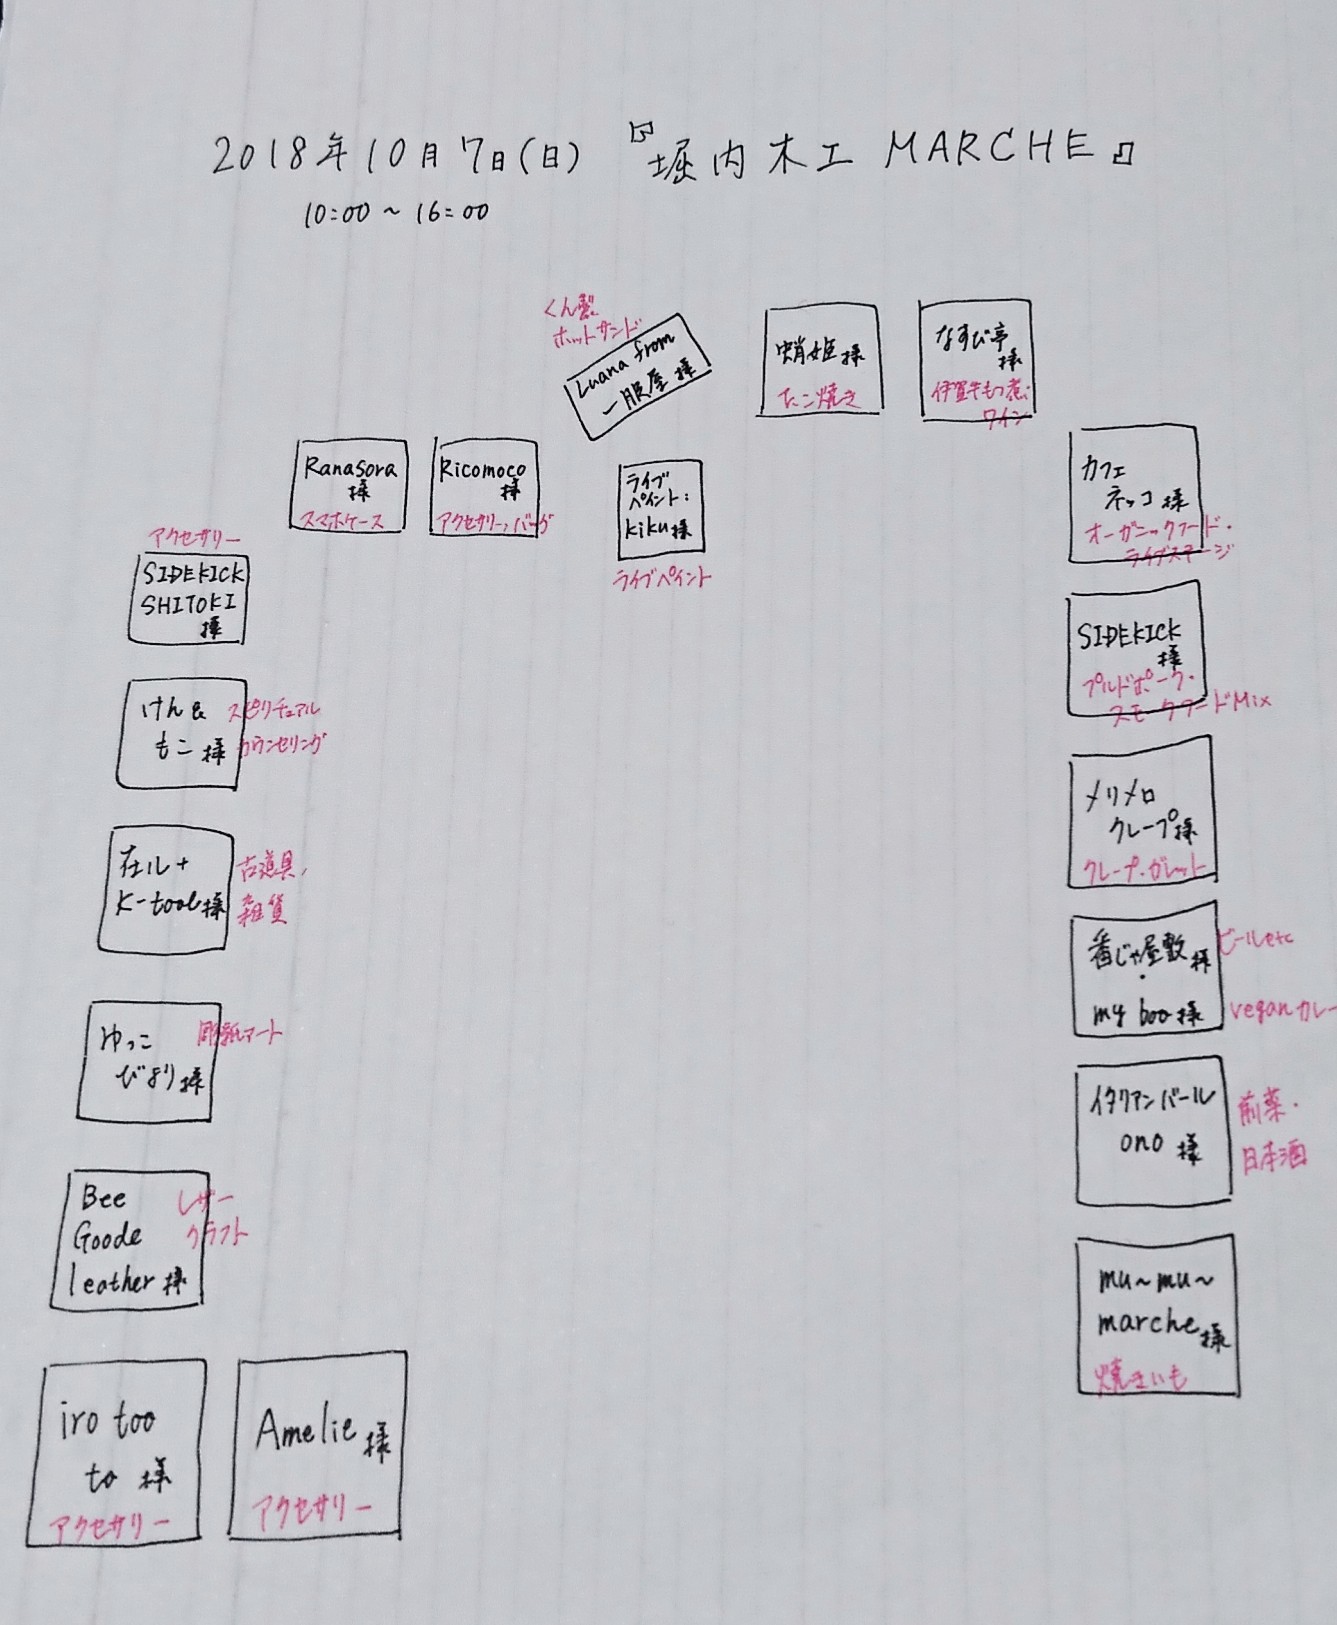 2018年10月7日(日) 『堀内木工 MARCHE』
10:00～16:00
くん製
ホットサンド
Luana from
一服屋 様
蛸姫様
たこ焼き
なすび亭
様
伊賀牛もつ煮・
ワイン
Ranasora
様
スマホケース
Ricomoco
様
アクセサリー,バッグ
ライブ
ペイント:
kiku様
ライブペイント
カフェ
ネッコ様
オーガニックフード・
ライブステージ
アクセサリー
SIDEKICK
SHITOKI
様
SIDEKICK
様
プルドポーク・
スモークフードMix
けん&
もこ様
スピリチュアル
カウンセリング
メリメロ
クレープ様
クレープ・ガレット
在ル+
K-tool様
古道具,
雑貨
番じゃ屋敷様
・
my boo様
ビールetc
veganカレー
ゆっこ
びより様
彫紙アート
イタリアンバール
ono 様
前菜・
日本酒
Bee
Goode
leather様
レザー
クラフト
mu～mu～
marche様
焼きいも
iro too
to 様
アクセサリー
Amelie様
アクセサリー